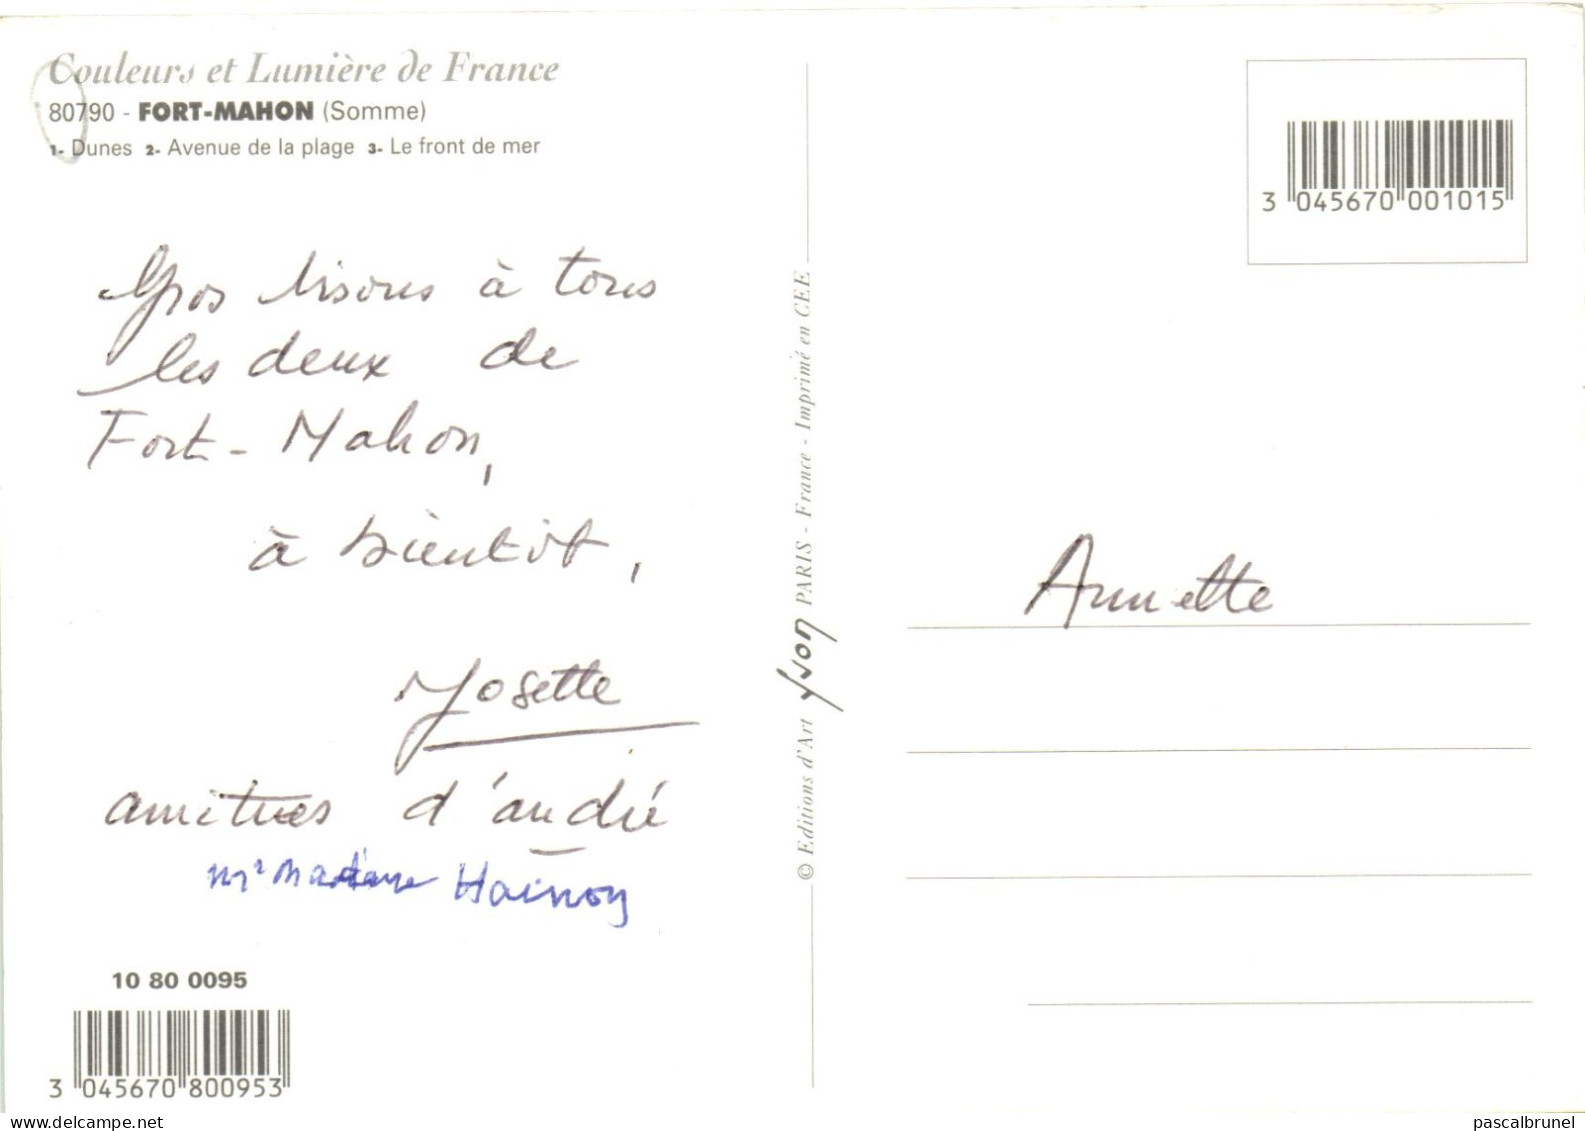 Couleurs et Lumière de France
80790 - FORT-MAHON (Somme)
1- Dunes 2- Avenue de la plage 3- Le front de mer
3 045670 001015
Gros bisous à tous
les deux de
Fort-Mahon,
à bientôt,
Josette
amitiés d'andré
Mr Madame Hainoy
10 80 0095
3 045670 800953
© Editions d'Art yvon PARIS - France - Imprimé en CEE
Annette
delcampe.net
pascalbrunel